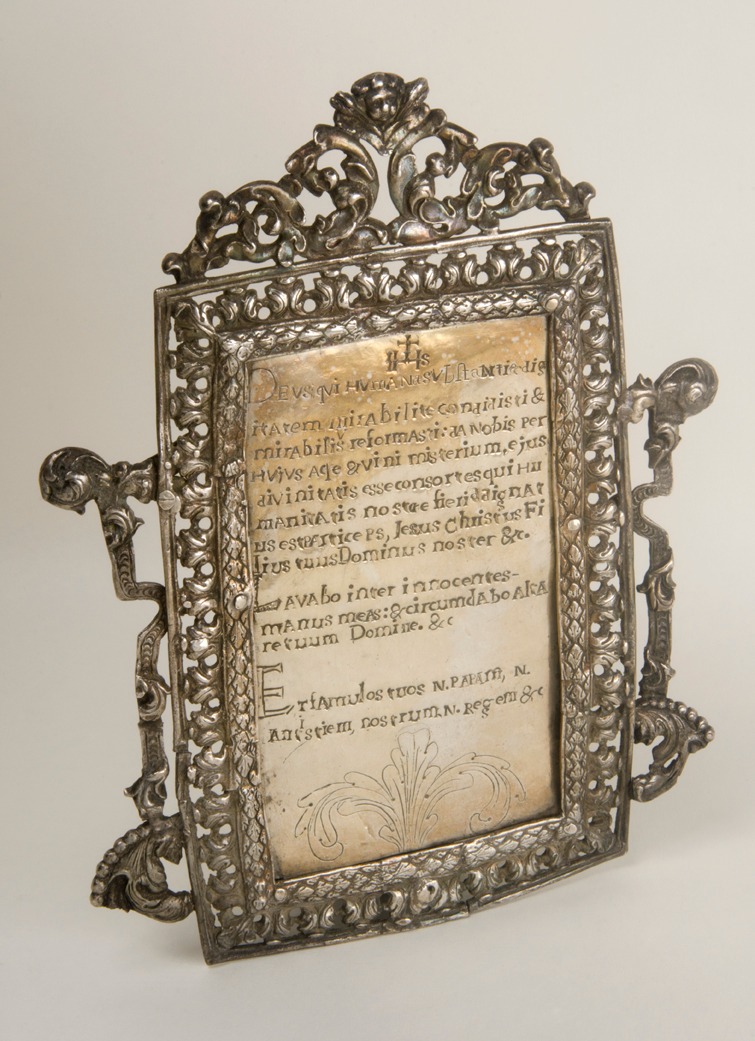 IHS
DEUS qUi HUMANæ SUbStantiæ dig
itatem mirabilite condidisti &
mirabiliſ reformasti: da Nobis Per
HUjUS AQe & vini misterium, ejUS
divinitatis esse consortes qUi HU
manitatis nostræ fieri daignat
us est Partice PS, Jesus Christus Fi
lius tuus Dominus noster &c.
LAVAbo inter innocentes-
manus meas: & circumdabo Alta
re tuum Domine. &c
Et famulos tuos N. PAPAm, N.
Antistiem, nostrum. N. Regem &c